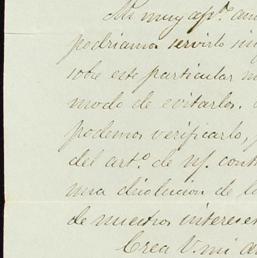 Mi muy apº. am
podriamos servirlo sin
sobre este particular n
modo de evitarlos.
podemos verificarlo,
del artº. de nf. cont
una disolucion de l
de nuestros interese
Crea V. mi a